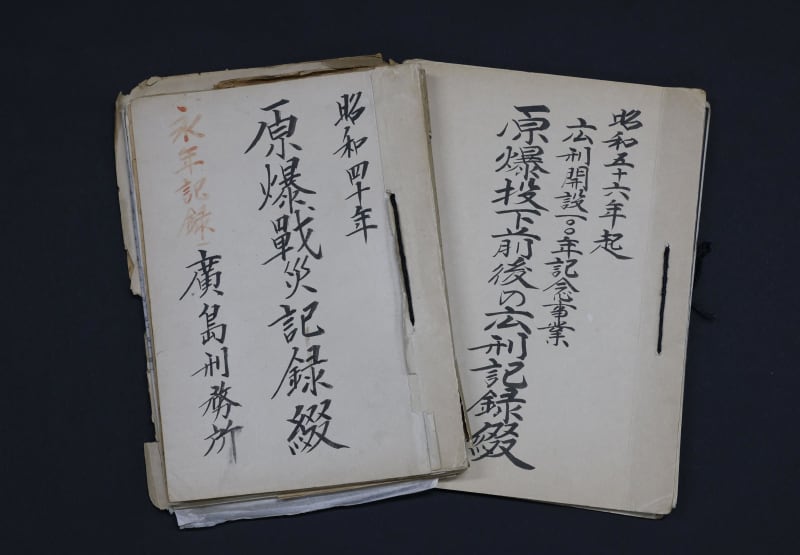 昭和四十年
原爆戰災記録綴
廣島刑務所
永年記録
昭和五十六年起
広刑開設一〇〇年記念事業
原爆投下前後の広刑記録綴